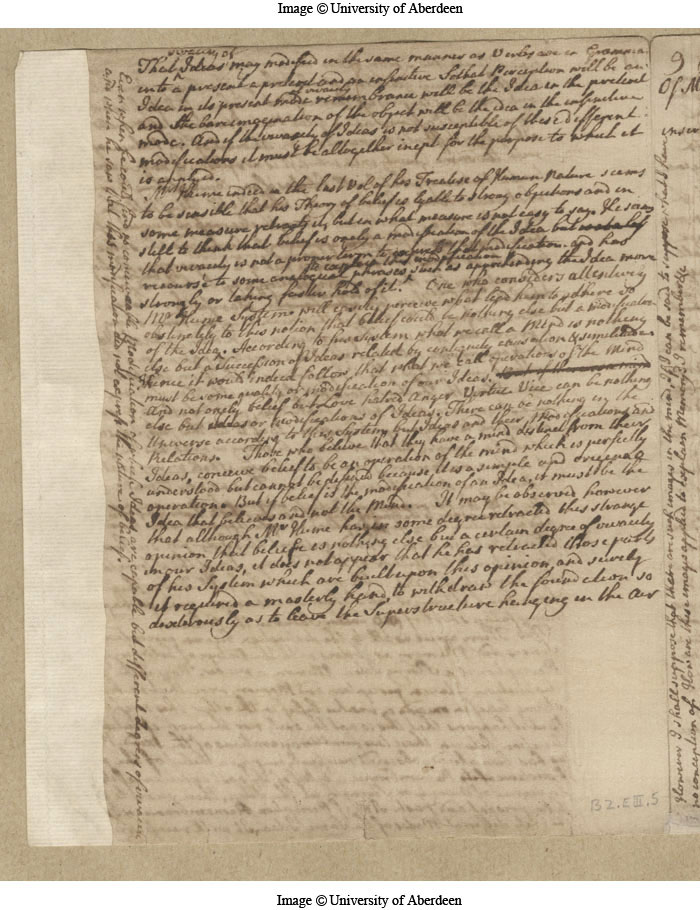 Image © University of Aberdeen
vivacity of
That Ideas may modified in the same manner as Verbs are in Grammar
into a present a preterit and an infinitive So that Perception will be an
Idea in its present mode remembrance will be the Idea in the preterit
and the bare imagination of the object will be the idea in the infinitive
mode. And if the vivacity of Ideas is not susceptible of these different
modifications it must be altogether inept for the purpose to which it
is applyed.
Mr Hume indeed in the last Vol of his Treatise of Human Nature seems
to be sensible that his Theory of belief is lyable to strong objections and in
some measure retracts it, but in what measure is not easy to say. He seems
still to think that belief is onely a modification of the Idea but
that vivacity is not a proper term to express that modification. and has
recourse to some analogical phrases such as apprehending the Idea more
strongly or taking faster hold of it. One who considers attentively
Mr Humes System will easily perceive what led him to adhere so
obstinately to this notion that belief could be nothing else but a modification
of the Idea. According to his System what we call a Mind is nothing
else but a Succession of Ideas related by contiguity causation & similitude
Hence it would indeed follow that what we call operations of the Mind
must be some quality or modification of our Ideas.
And not onely belief but Love hatred Anger Virtue Vice can be nothing
else but Ideas or modifications of Ideas. There can be nothing in the
Universe according to this System but Ideas and their Modifications and
Relations. Those who believe that they have a mind distinct from their
Ideas, conceive belief to be an operation of the mind which is perfectly
understood but cannot be defined because it is a simple and original
operation. But if belief is the modification of an Idea, it must be the
Idea that believes and not the Mind. It may be observed however
that although Mr Hume has in some degree retracted this strange
opinion that belief is nothing else but a certain degree of vivacity
in our Ideas, it does not appear that he has retracted those parts
of his System which are built upon this opinion, and surely
it required a masterly hand to withdraw the foundation so
dexterously as to leave the Superstructure hanging in the Air
and when he saw that this modification did not express the nature of belief.
9
Of M
B2.EIII.5
Image © University of Aberdeen